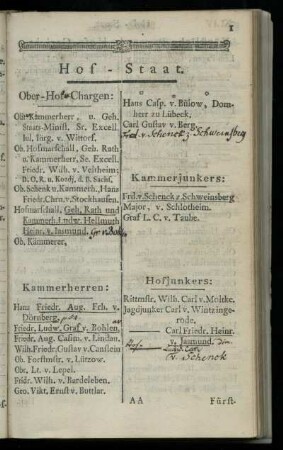 1
Hof-Staat.
Ober-Hof-Chargen:
Ob. Kammerherr, u. Geh.
Staats-Minist. Sr. Excell.
Jul. Jürg. v. Wittorf.
Ob. Hofmarschall, Geh. Rath
u. Kammerherr, Se. Excell.
Friedr. Wilh. v. Veltheim:
Ob. Schenk u. Kammerh. Hans
Friedr. Chrn. v. Stockhausen.
Hofmarschall, Geh. Rath und
Kammerh. Ludw. Hellmuth
Heinr. v. Jasmund.
Ob. Kämmerer,
Kammerherren:
Hans Friedr. Aug. Fch. v.
Dörnberg.
Friedr. Ludw. Graf v. Bohlen.
Friedr. Aug. Casim. v. Lindau.
Wilh. Friedr. Gustav v. Canstein
Ob. Forstmstr. v. Lützow.
Obr. Lt. v. Lepel.
Fridr. Wilh. v. Bardeleben.
Gro. Vikt. Ernst v. Buttlar.
Hans Casp. v. Bülow, Dom-
herr zu Lübeck.
Carl Gustav v. Berg.
Frd. v. Schenck z. Schweinsberg
Kammerjunkers:
Frd. v. Schenck z. Schweinsberg
Major, v. Schlotheim.
Graf L. C. v. Taube.
Hofjunkers:
Rittmstr. Wilh. Carl v. Moltke.
Jagdjunker Carl v. Wintzinge-
rode.
Carl Friedr. Heinr.
v. Jasmund.
v. Schenck
AA
Fürst-